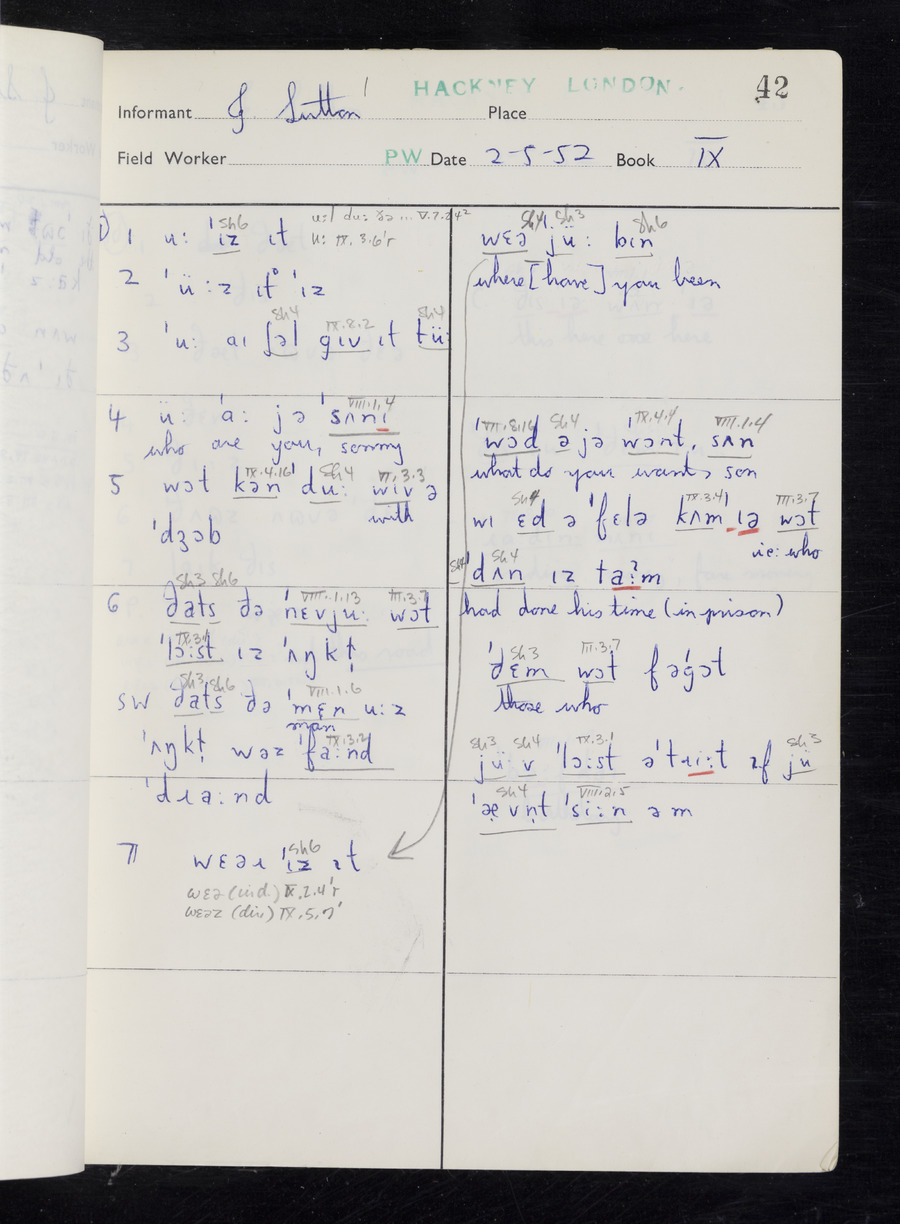 HACKNEY LONDON.
42
Informant J. Sutton Place
Field Worker PW Date 2-5-52 Book IX
Sh6
1 u: ˈɪz ɪt
u: IX.3.6ʹr
2 ˈü:z ɪt ˈɪz
Sh4 IX.8.2 Sh4
3 ˈu: aɪ ʃəl gɪv ɪt tü:
VIII.1.4
4 ü: ˈa: jə ˈsʌnɪ
who are you, sonny
IX.4.16 Sh4 VI.3.3
5 wɔt kən ˈdu: wɪv ə
with
ˈdʒɔb
Sh3 Sh6 VIII.1.13 III.3.7
6 ðats ðə ˈnɛvju: wɔt
IX.3.1
ˈlɔ:st ɪz ˈʌŋkḷ
Sh3 Sh6 VIII.1.6
SW ðats ðə ˈmɛn u:z
man
IX.3.2
ˈʌŋkḷ wəz ˈfa:nd
ˈdɹa:nd
Sh6
7 wɛəɹ ˈɪz ɪt
wɛə (ind.) IX.2.4ʹr
wɛəz (dir.) IX.5.7ʹ
Sh4 Sh3 Sh6
wɛə ˈjü: bɪn
where [have] you been
VIII.8.16 Sh4 IX.4.4 VIII.1.4
ˈwɔd ə jə ˈwɔnt, sʌn
what do you want, son
Sh4 IX.3.4 III.3.7
wɪ ɛd ə ˈfɛlə kʌm ˈɪə wɔt
ie: who
Sh4 Sh4
dʌn ɪz taʔm
had done his time (in prison)
Sh3 III.3.7
ˈðɛm wɔt fəˈgɔt
those who
Sh3 Sh4 IX.3.1 Sh3
jü: v ˈlɔ:st əˈtɹi:t ɪf jü
Sh4 VIII.2.5
ˈæ vṇt ˈsi:n əm